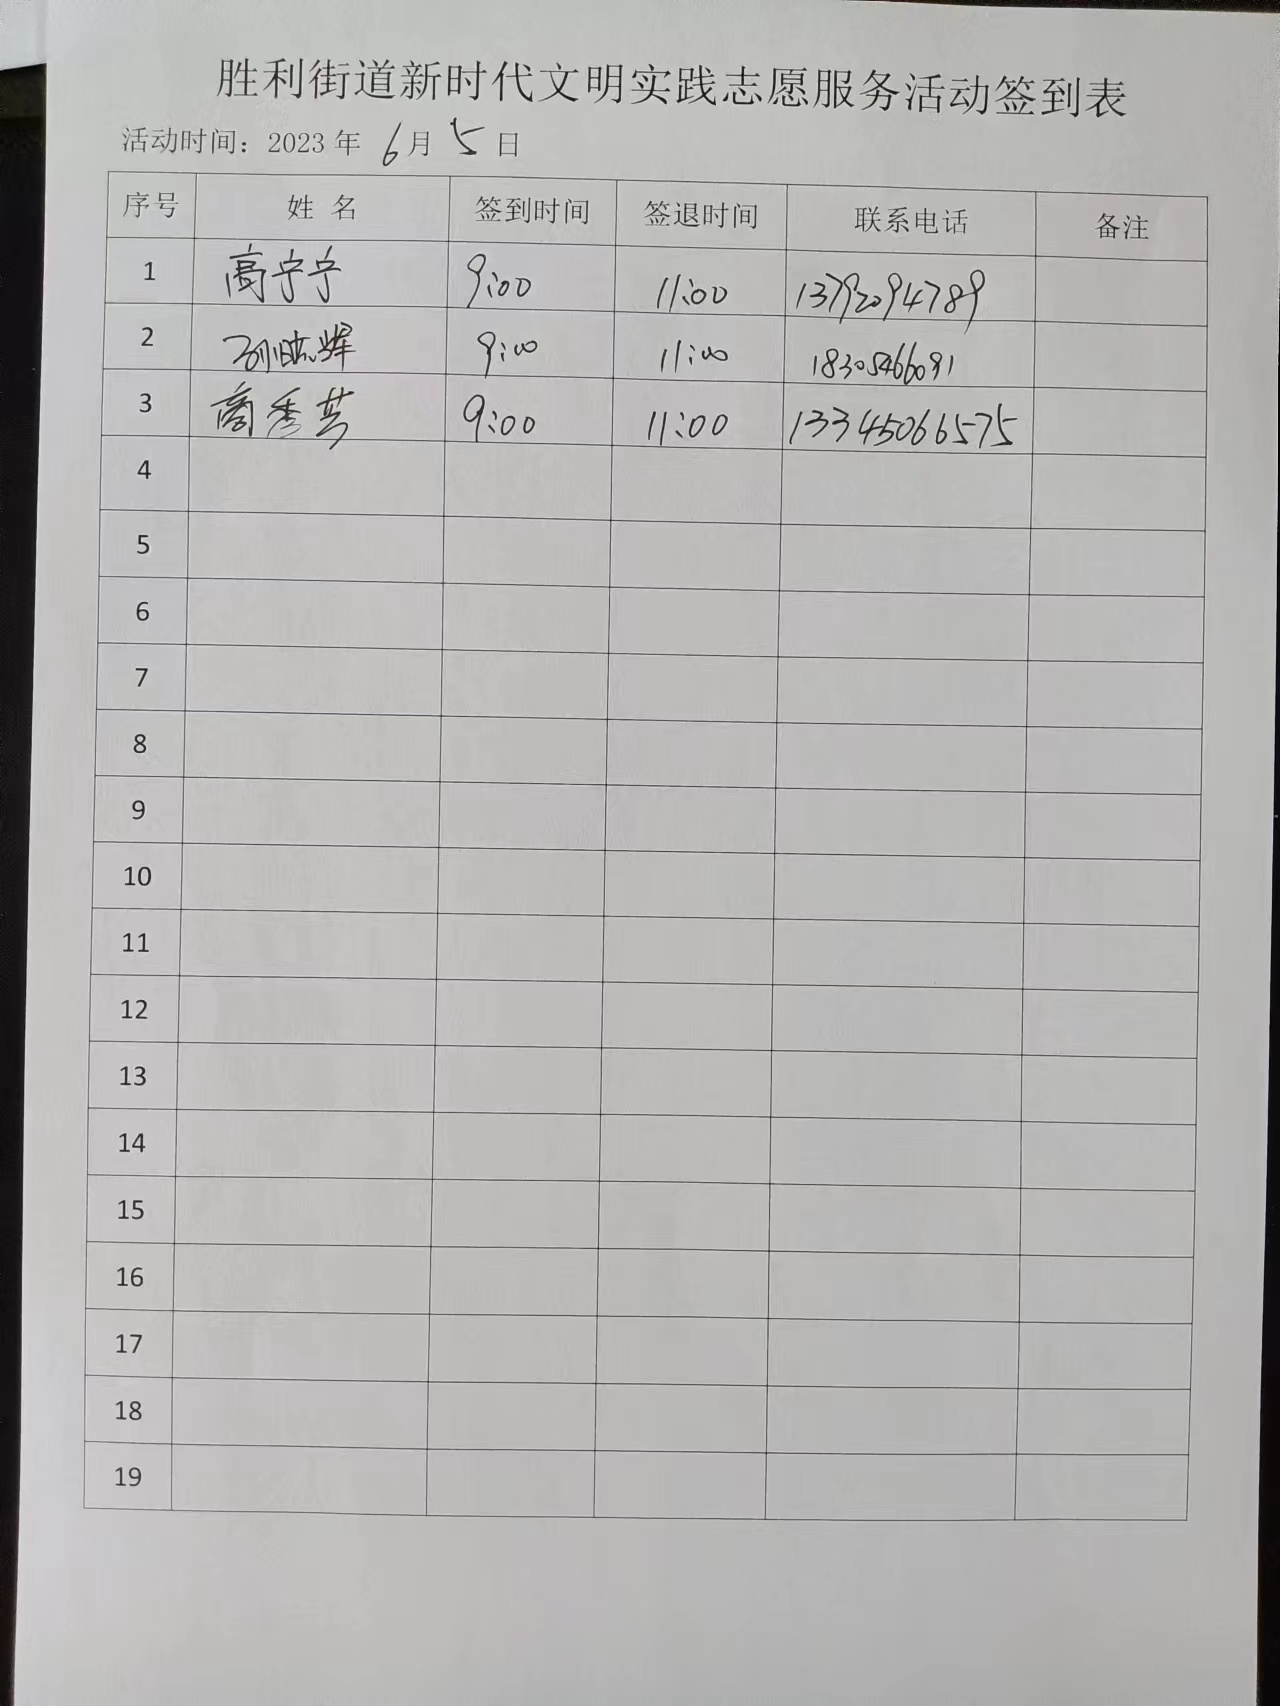 胜利街道新时代文明实践志愿服务活动签到表
活动时间：2023 年 6 月 5 日
序号 姓 名 签到时间 签退时间 联系电话 备注
1 高宁宁 9:00 11:00 13792094789
2 9:00 11:00 18305466091
3 商秀芸 9:00 11:00 13345066575
4
5
6
7
8
9
10
11
12
13
14
15
16
17
18
19